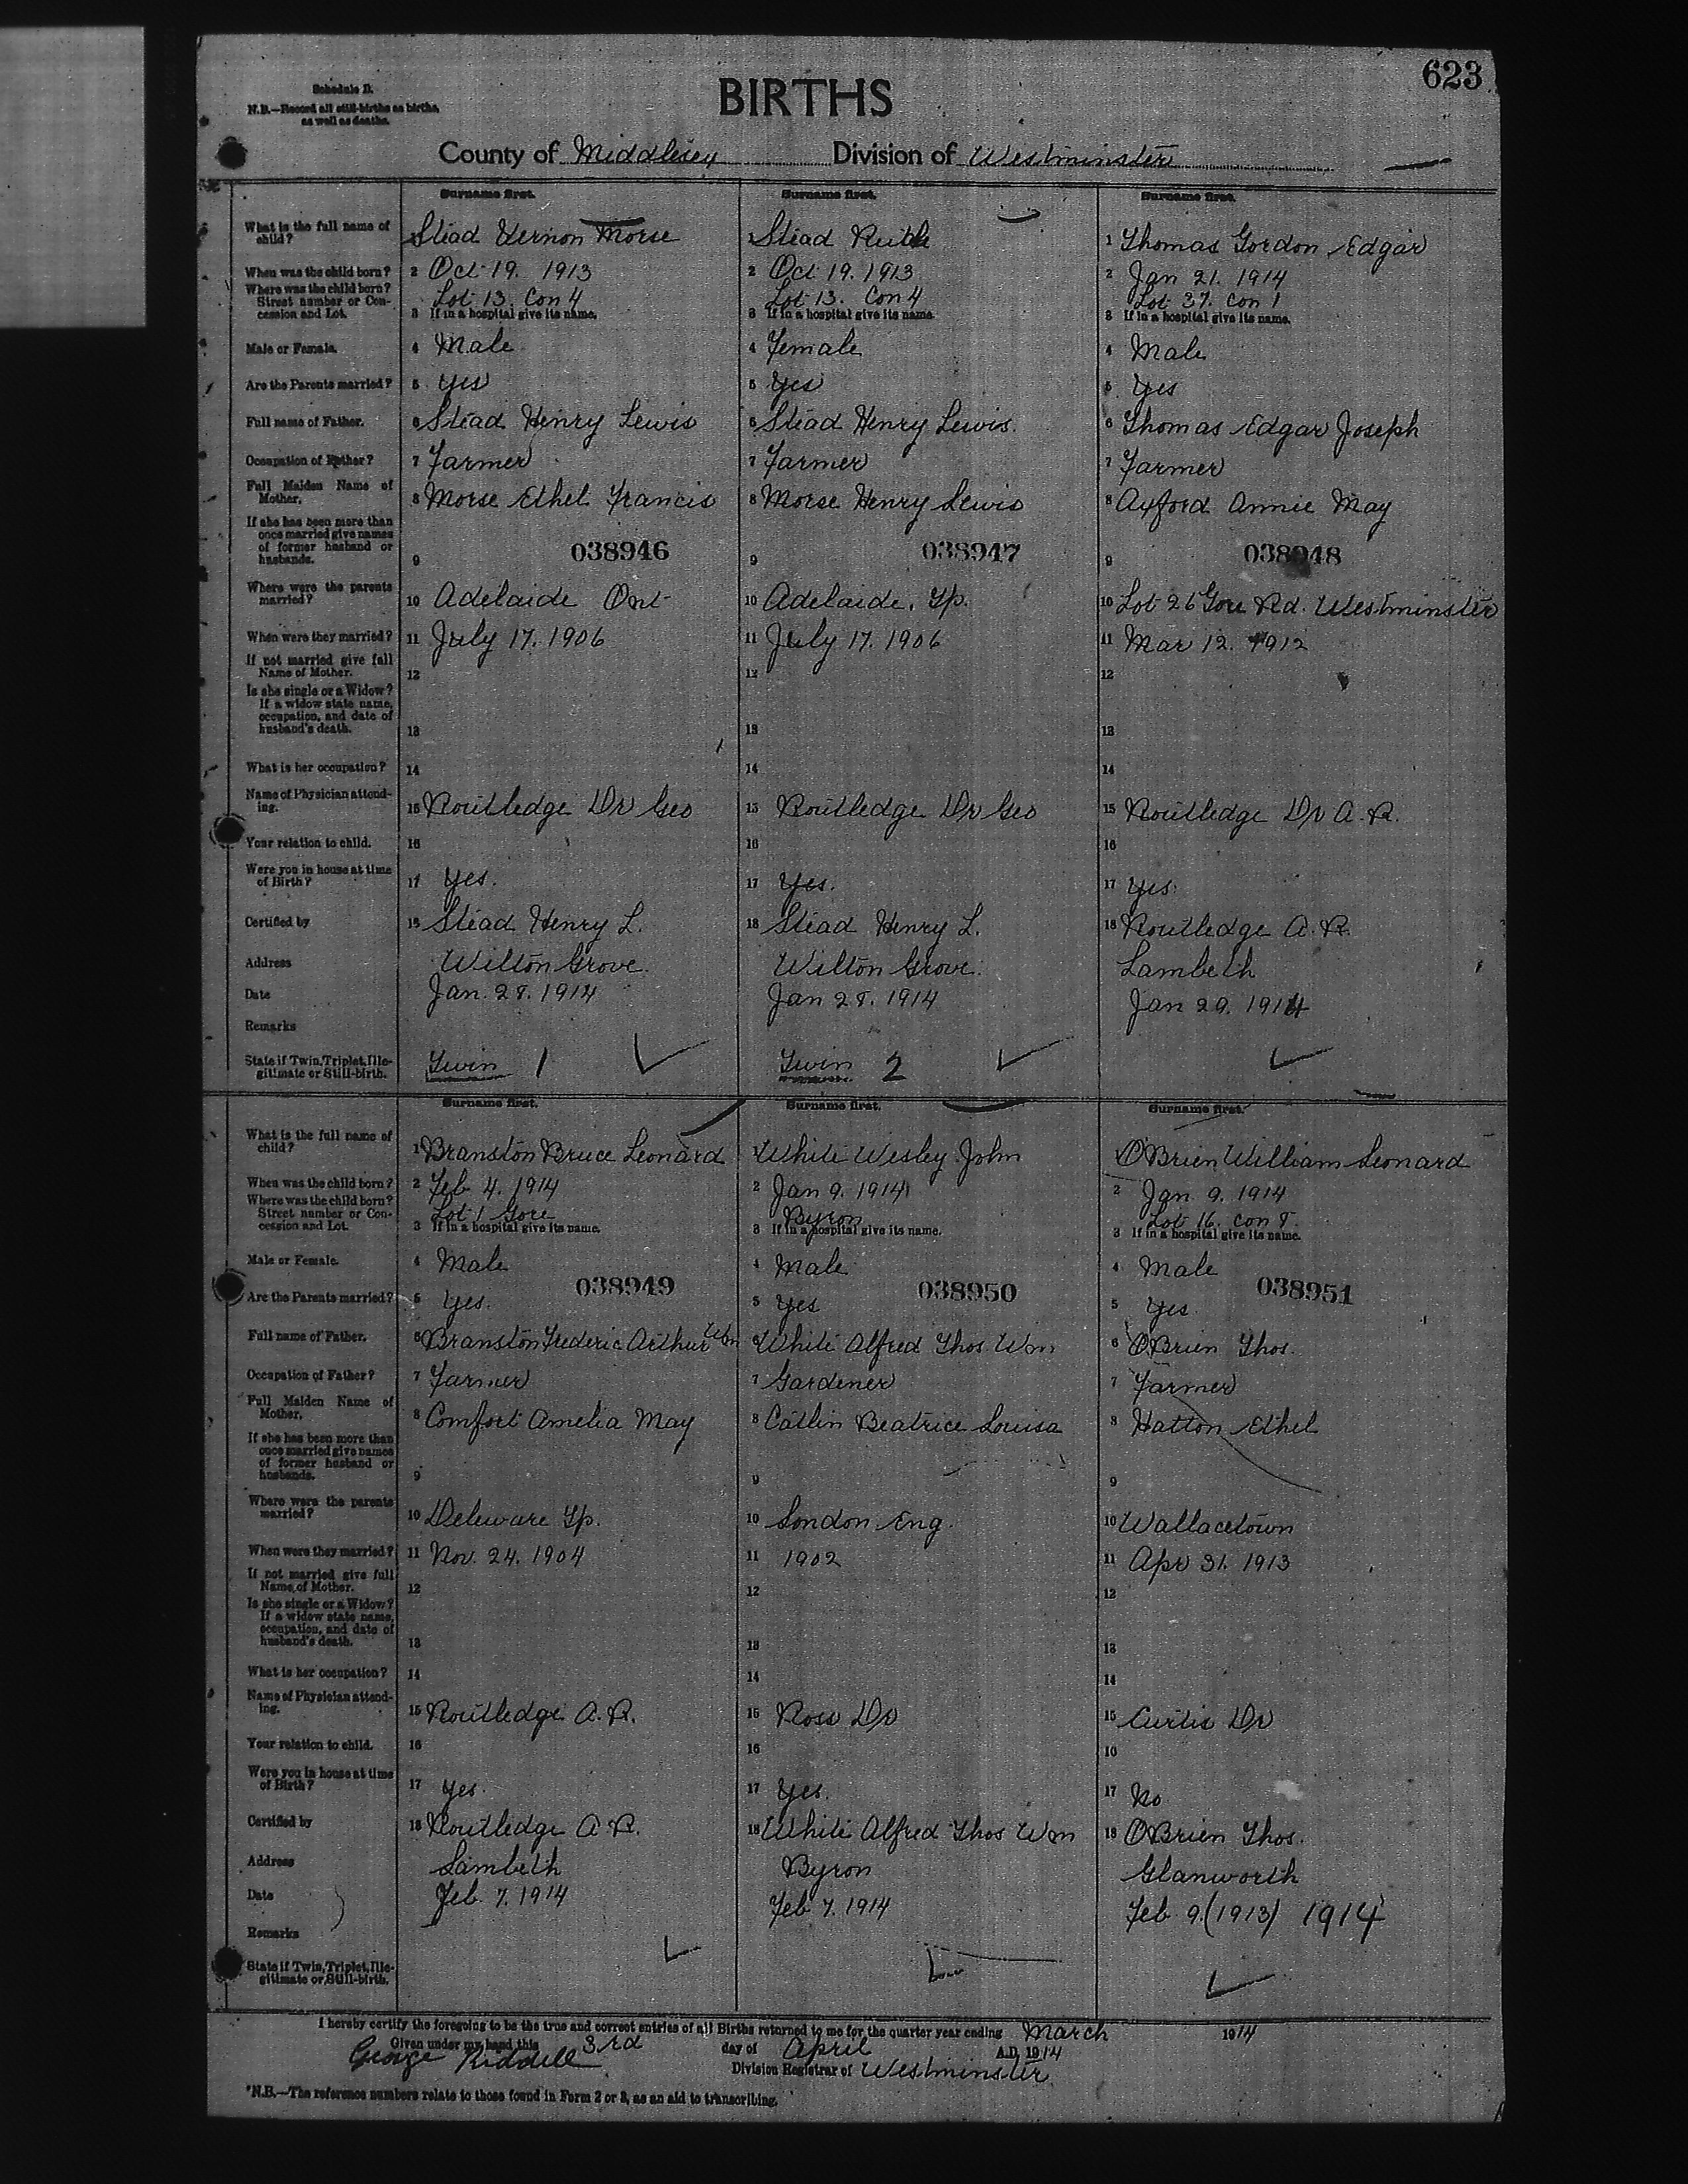 623
Schedule D.
N.B.—Record all still-births as births, as well as deaths.
BIRTHS
County of Middlesex Division of Westminster
Surname first. Surname first. Surname first.
What is the full name of child? 1 Stead Vernon Morse 1 Stead Ruth 1 Thomas Gordon Edgar
When was the child born? 2 Oct 19. 1913 2 Oct 19. 1913 2 Jan 21. 1914
Where was the child born? Street number or Concession and Lot. Lot 13. Con 4 Lot 13. Con 4 Lot 37. Con 1
3 If in a hospital give its name. 3 If in a hospital give its name. 3 If in a hospital give its name.
Male or Female. 4 Male 4 Female 4 Male
Are the Parents married? 5 Yes 5 Yes 5 Yes
Full name of Father. 6 Stead Henry Lewis 6 Stead Henry Lewis. 6 Thomas Edgar Joseph
Occupation of Father? 7 Farmer 7 Farmer 7 Farmer
Full Maiden Name of Mother. 8 Morse Ethel Francis 8 Morse Henry Lewis 8 Axford Annie May
If she has been more than once married give names of former husband or husbands. 9 038946 9 038947 9 038948
Where were the parents married? 10 Adelaide Ont 10 Adelaide. Tp. 10 Lot 26 Gore Rd. Westminster
When were they married? 11 July 17. 1906 11 July 17. 1906 11 Mar 12. 1912
If not married give full Name of Mother. 12 12 12
Is she single or a Widow? If a widow state name, occupation, and date of husband's death. 13 13 13
What is her occupation? 14 14 14
Name of Physician attending. 15 Routledge Dr Geo 15 Routledge Dr Geo 15 Routledge Dr A. R.
Your relation to child. 16 16 16
Were you in house at time of Birth? 17 Yes. 17 Yes. 17 Yes.
Certified by 18 Stead Henry L. 18 Stead Henry L. 18 Routledge A. R.
Address Wilton Grove. Wilton Grove. Lambeth
Date Jan. 28. 1914 Jan 28. 1914 Jan 29. 1914
Remarks
State if Twin, Triplet, Illegitimate or Still-birth. Twin 1 Twin 2
Surname first. Surname first. Surname first.
What is the full name of child? 1 Branston Bruce Leonard 1 White Wesley John 1 O'Brien William Leonard
When was the child born? 2 Feb 4. 1914 2 Jan 9. 1914 2 Jan. 9. 1914
Where was the child born? Street number or Concession and Lot. Lot 1 Gore Byron Lot 16. Con 8.
3 If in a hospital give its name. 3 If in a hospital give its name. 3 If in a hospital give its name.
Male or Female. 4 Male 4 Male 4 Male
038949 038950 038951
Are the Parents married? 5 Yes. 5 Yes 5 Yes.
Full name of Father. 6 Branston Frederic Arthur Wm 6 White Alfred Thos. Wm 6 O'Brien Thos.
Occupation of Father? 7 Farmer 7 Gardener 7 Farmer
Full Maiden Name of Mother. 8 Comfort Amelia May 8 Catlin Beatrice Louisa 8 Hatton Ethel
If she has been more than once married give names of former husband or husbands. 9 9 9
Where were the parents married? 10 Deleware Tp. 10 London Eng. 10 Wallacetown
When were they married? 11 Nov. 24. 1904 11 1902 11 Apr 31. 1913
If not married give full Name of Mother. 12 12 12
Is she single or a Widow? If a widow state name, occupation, and date of husband's death. 13 13 13
What is her occupation? 14 14 14
Name of Physician attending. 15 Routledge A. R. 15 Ross Dr 15 Curtis Dr
Your relation to child. 16 16 16
Were you in house at time of Birth? 17 Yes. 17 Yes. 17 No
Certified by 18 Routledge A. R. 18 White Alfred Thos Wm 18 O'Brien Thos.
Address Lambeth Byron Glanworth
Date Feb 7. 1914 Feb 7. 1914 Feb 9. (1913) 1914
Remarks
State if Twin, Triplet, Illegitimate or Still-birth.
I hereby certify the foregoing to be the true and correct entries of all Births returned to me for the quarter year ending March 1914
Given under my hand this 3rd day of April A.D. 1914
George Riddell Division Registrar of Westminster
*N.B.—The reference numbers relate to those found in Form 2 or 3, as an aid to transcribing.